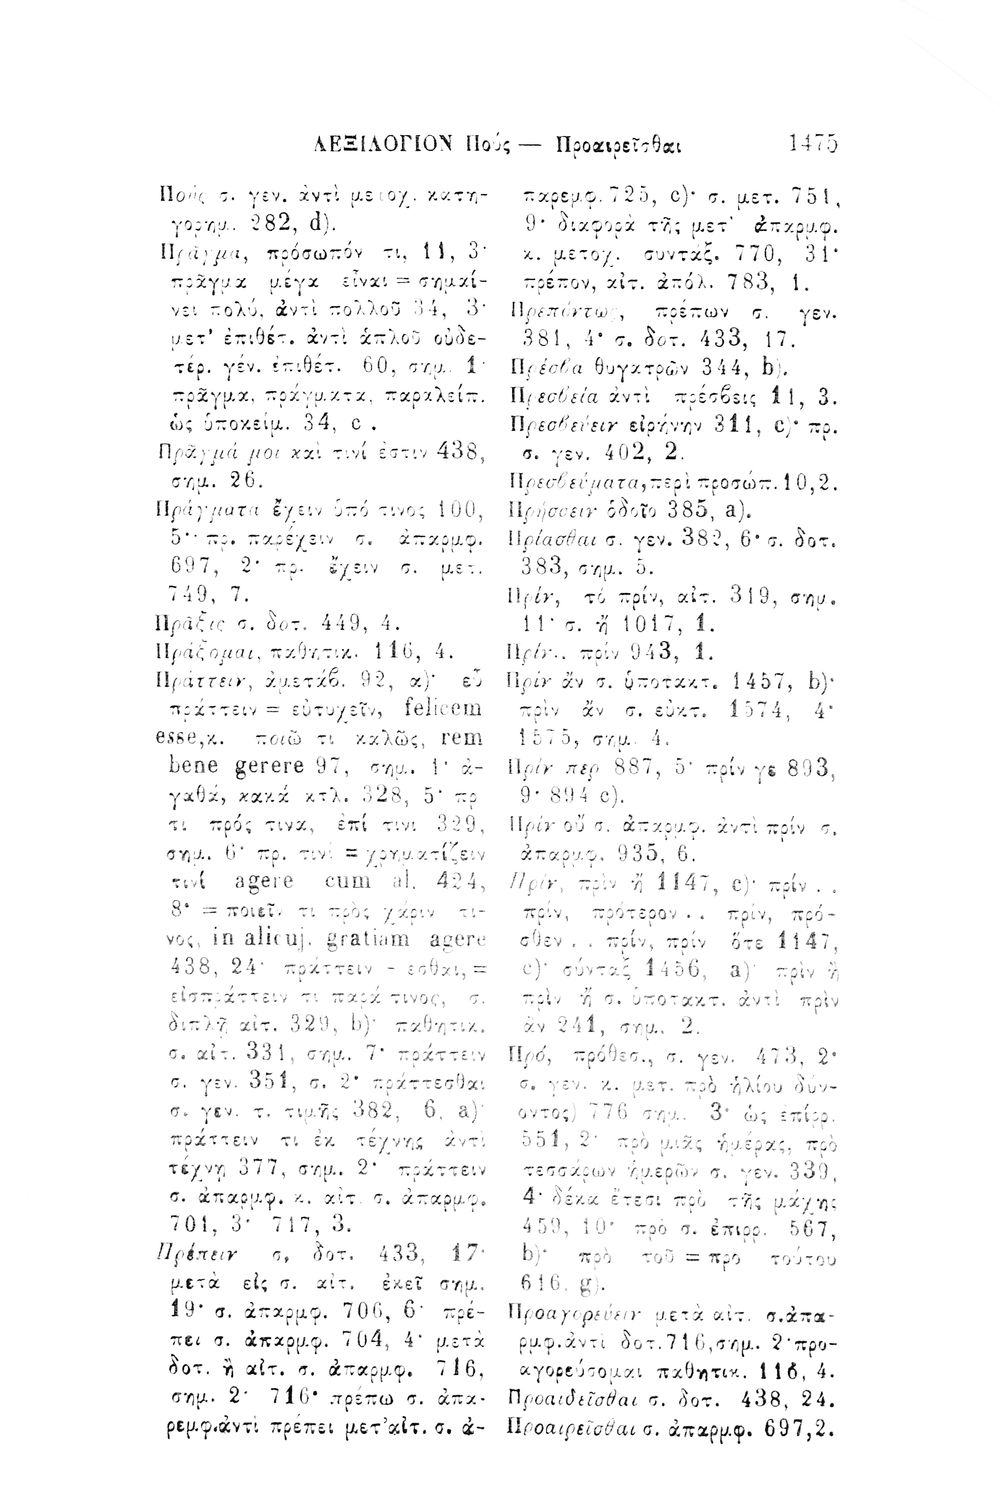 ΛΕΞΙΛΟΓΙΟΝ Πούς — Προαιρεῖσθαι 1475
Πούς σ. γεν. ἀντὶ μετοχ. κατη-
γορημ. 282, d).
Πρᾶγμα, πρόσωπόν τι, 11, 3·
πρᾶγμα μέγα εἶναι = σημαί-
νει πολύ, ἀντὶ πολλοῦ 34, 3·
μετ' ἐπιθέτ. ἀντὶ ἁπλοῦ οὐδε-
τέρ. γέν. ἐπιθέτ. 60, σημ. 1·
πρᾶγμα, πράγματα, παραλείπ.
ὡς ὑποκείμ. 34, c .
Πρᾶγμά μοι καὶ τινί ἐστιν 438,
σημ. 26.
Πράγματα ἔχειν ὑπό τινος 100,
5·· πρ. παρέχειν σ. ἀπαρμφ.
697, 2· πρ. ἔχειν σ. μετ.
749, 7.
Πρᾶξις σ. δοτ. 449, 4.
Πράξομαι, παθητικ. 116, 4.
Πράττειν, ἀμετάβ. 92, α)· εὖ
πράττειν = εὐτυχεῖν, felicem
esse,κ. ποιῶ τι καλῶς, rem
bene gerere 97, σημ. 1· ἀ-
γαθά, κακά κτλ. 328, 5· πρ
τι πρός τινα, ἐπί τινι 329,
σημ. 6· πρ. τινι = χρηματίζειν
τινί agere cum al. 424,
8· = ποιεῖν τι πρὸς χάριν τι-
νος, in alicuj. gratiam agere
438, 24· πράττειν - εσθαι, =
εἰσπράττειν τι παρά τινος, σ.
διπλῇ αἰτ. 329, b)· παθητικ.
σ. αἰτ. 331, σημ. 7· πράττειν
σ. γεν. 351, σ. 2· πράττεσθαι
σ. γεν. τ. τιμῆς 382, 6, a)·
πράττειν τι ἐκ τέχνης ἀντὶ
τέχνῃ 377, σημ. 2· πράττειν
σ. ἀπαρμφ. κ. αἰτ. σ. ἀπαρμφ.
701, 3· 717, 3.
Πρέπειν σ. δοτ. 433, 17·
μετὰ εἰς σ. αἰτ. ἐκεῖ σημ.
19· σ. ἀπαρμφ. 706, 6· πρέ-
πει σ. ἀπαρμφ. 704, 4· μετὰ
δοτ. ἢ αἰτ. σ. ἀπαρμφ. 716,
σημ. 2· 716· πρέπω σ. ἀπα-
ρεμφ.ἀντὶ πρέπει μετ'αἰτ. σ. ἀ-
παρεμφ. 725, c)· σ. μετ. 751,
9· διαφορὰ τῆς μετ' ἀπαρμφ.
κ. μετοχ. συντάξ. 770, 31·
πρέπον, αἰτ. ἀπόλ. 783, 1.
Πρεπόντως, πρέπων σ. γεν.
381, 4· σ. δοτ. 433, 17.
Πρέσβα θυγατρῶν 344, b).
Πρεσβεία ἀντὶ πρέσβεις 11, 3.
Πρεσβεύειν εἰρήνην 311, c)· πρ.
σ. γεν. 402, 2.
Πρεσβεύματα,περὶ προσώπ.10,2.
Πρήσσειν ὁδοῖο 385, a).
Πρίασθαι σ. γεν. 382, 6· σ. δοτ.
383, σημ. 5.
Πρίν, τὸ πρίν, αἰτ. 319, σημ.
11· σ. ἤ 1017, 1.
Πρίν.. πρίν 943, 1.
Πρὶν ἄν σ. ὑποτακτ. 1457, b)·
πρὶν ἄν σ. εὐκτ. 1574, 4·
1575, σημ. 4.
Πρίν περ 887, 5· πρίν γε 893,
9· 894 c).
Πρὶν οὔ σ. ἀπαρμφ. ἀντὶ πρίν σ.
ἀπαρμφ. 935, 6.
Πρίν, πρὶν ἤ 1147, c)· πρίν . .
πρίν, πρότερον . . πρίν, πρό-
σθεν . . πρίν, πρίν ὅτε 1147,
c)· σύνταξ 1456, a)· πρὶν ἢ
πρὶν ἤ σ. ὑποτακτ. ἀντὶ πρὶν
ἂν 241, σημ. 2.
Πρό, πρόθεσ., σ. γεν. 473, 2·
σ. γεν. κ. μετ. πρὸ ἡλίου δύν-
οντος) 776 σημ. 3· ὡς ἐπίρρ.
551, 2· πρὸ μιᾶς ἡμέρας, πρὸ
τεσσάρων ἡμερῶν σ. γεν. 339,
4· δέκα ἔτεσι πρὸ τῆς μάχης
459, 10· πρὸ σ. ἐπιρρ. 567,
b)· πρὸ τοῦ = προ τούτου
616. g).
Προαγορεύειν μετὰ αἰτ. σ.ἀπα-
ρμφ.ἀντὶ δοτ.716,σημ. 2·προ-
αγορεύσομαι παθητικ. 116, 4.
Προαιδεῖσθαι σ. δοτ. 438, 24.
Προαιρεῖσθαι σ. ἀπαρμφ. 697,2.